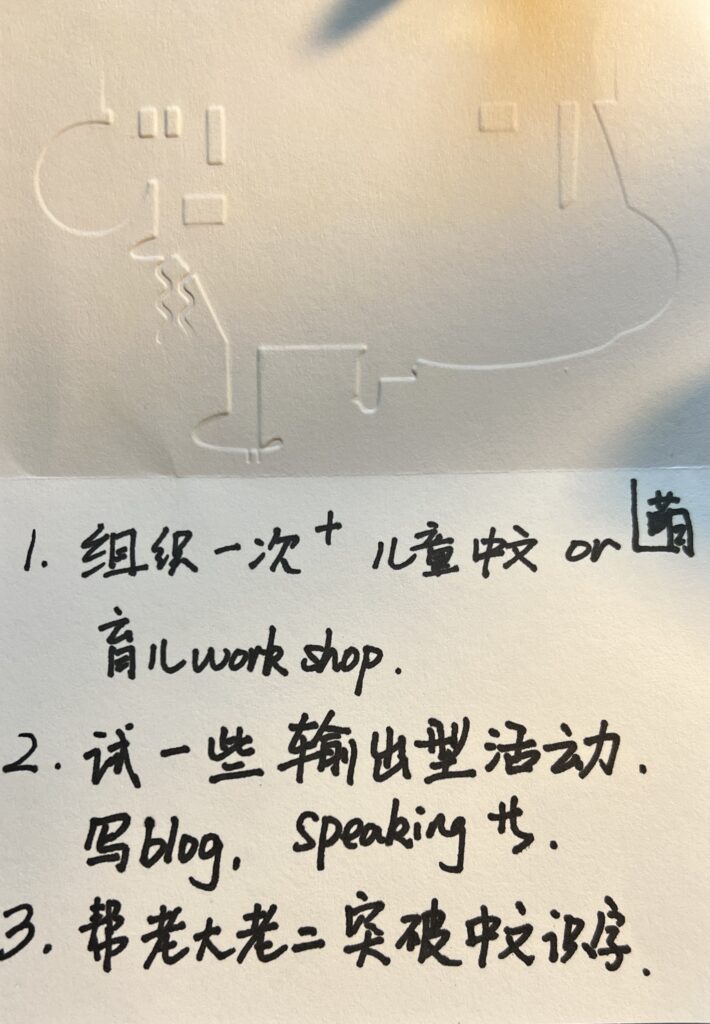 1. 组织一次+ 儿童中文 or
育儿 workshop.
2. 试一些输出型活动.
写blog, speaking 等.
3. 帮老大老二突破中文识字.